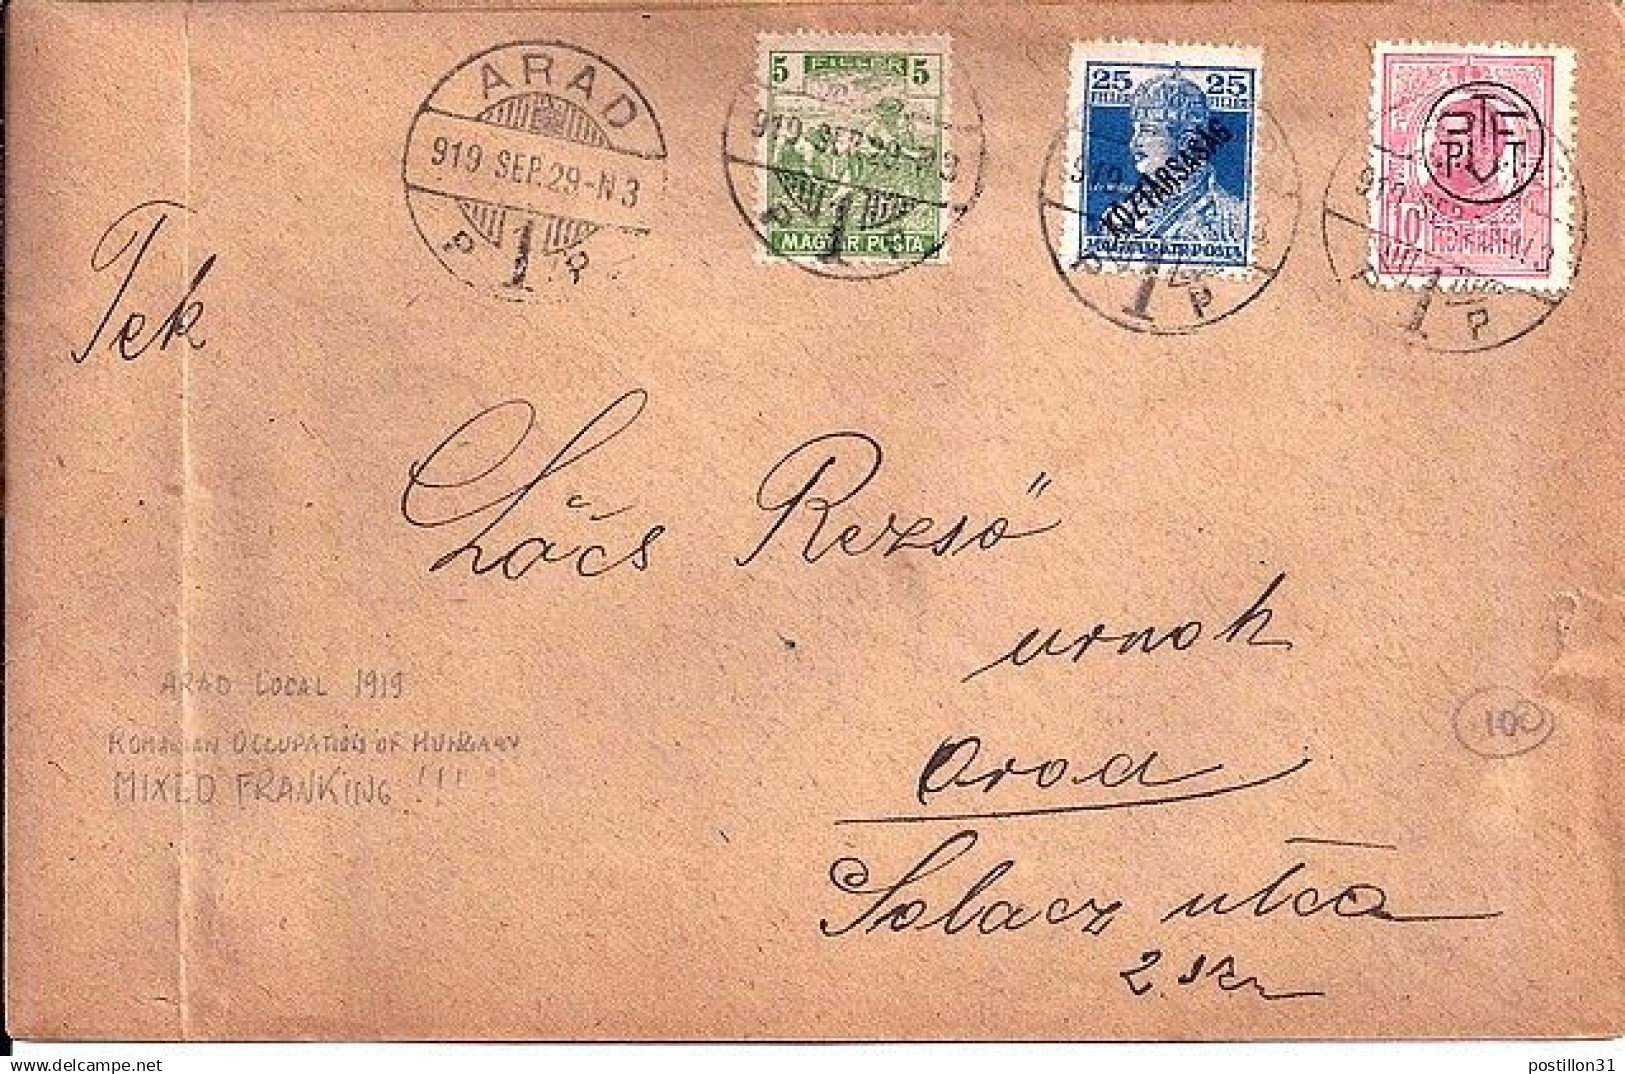 ARAD
919 SEP.29-N3
1
5 FILLÉR 5
MAGYAR POSTA
25 25
FILLÉR FILLÉR
KÖZTÁRSASÁG
MAGYAR KIR. POSTA
P.T.T.
10 ROMANIA
Tek
Rezső
urnok
Arad
utca
2. sz
ARAD LOCAL 1919
ROMANIAN OCCUPATION OF HUNGARY
MIXED FRANKING !!!
100
delcampe.net
postillon31